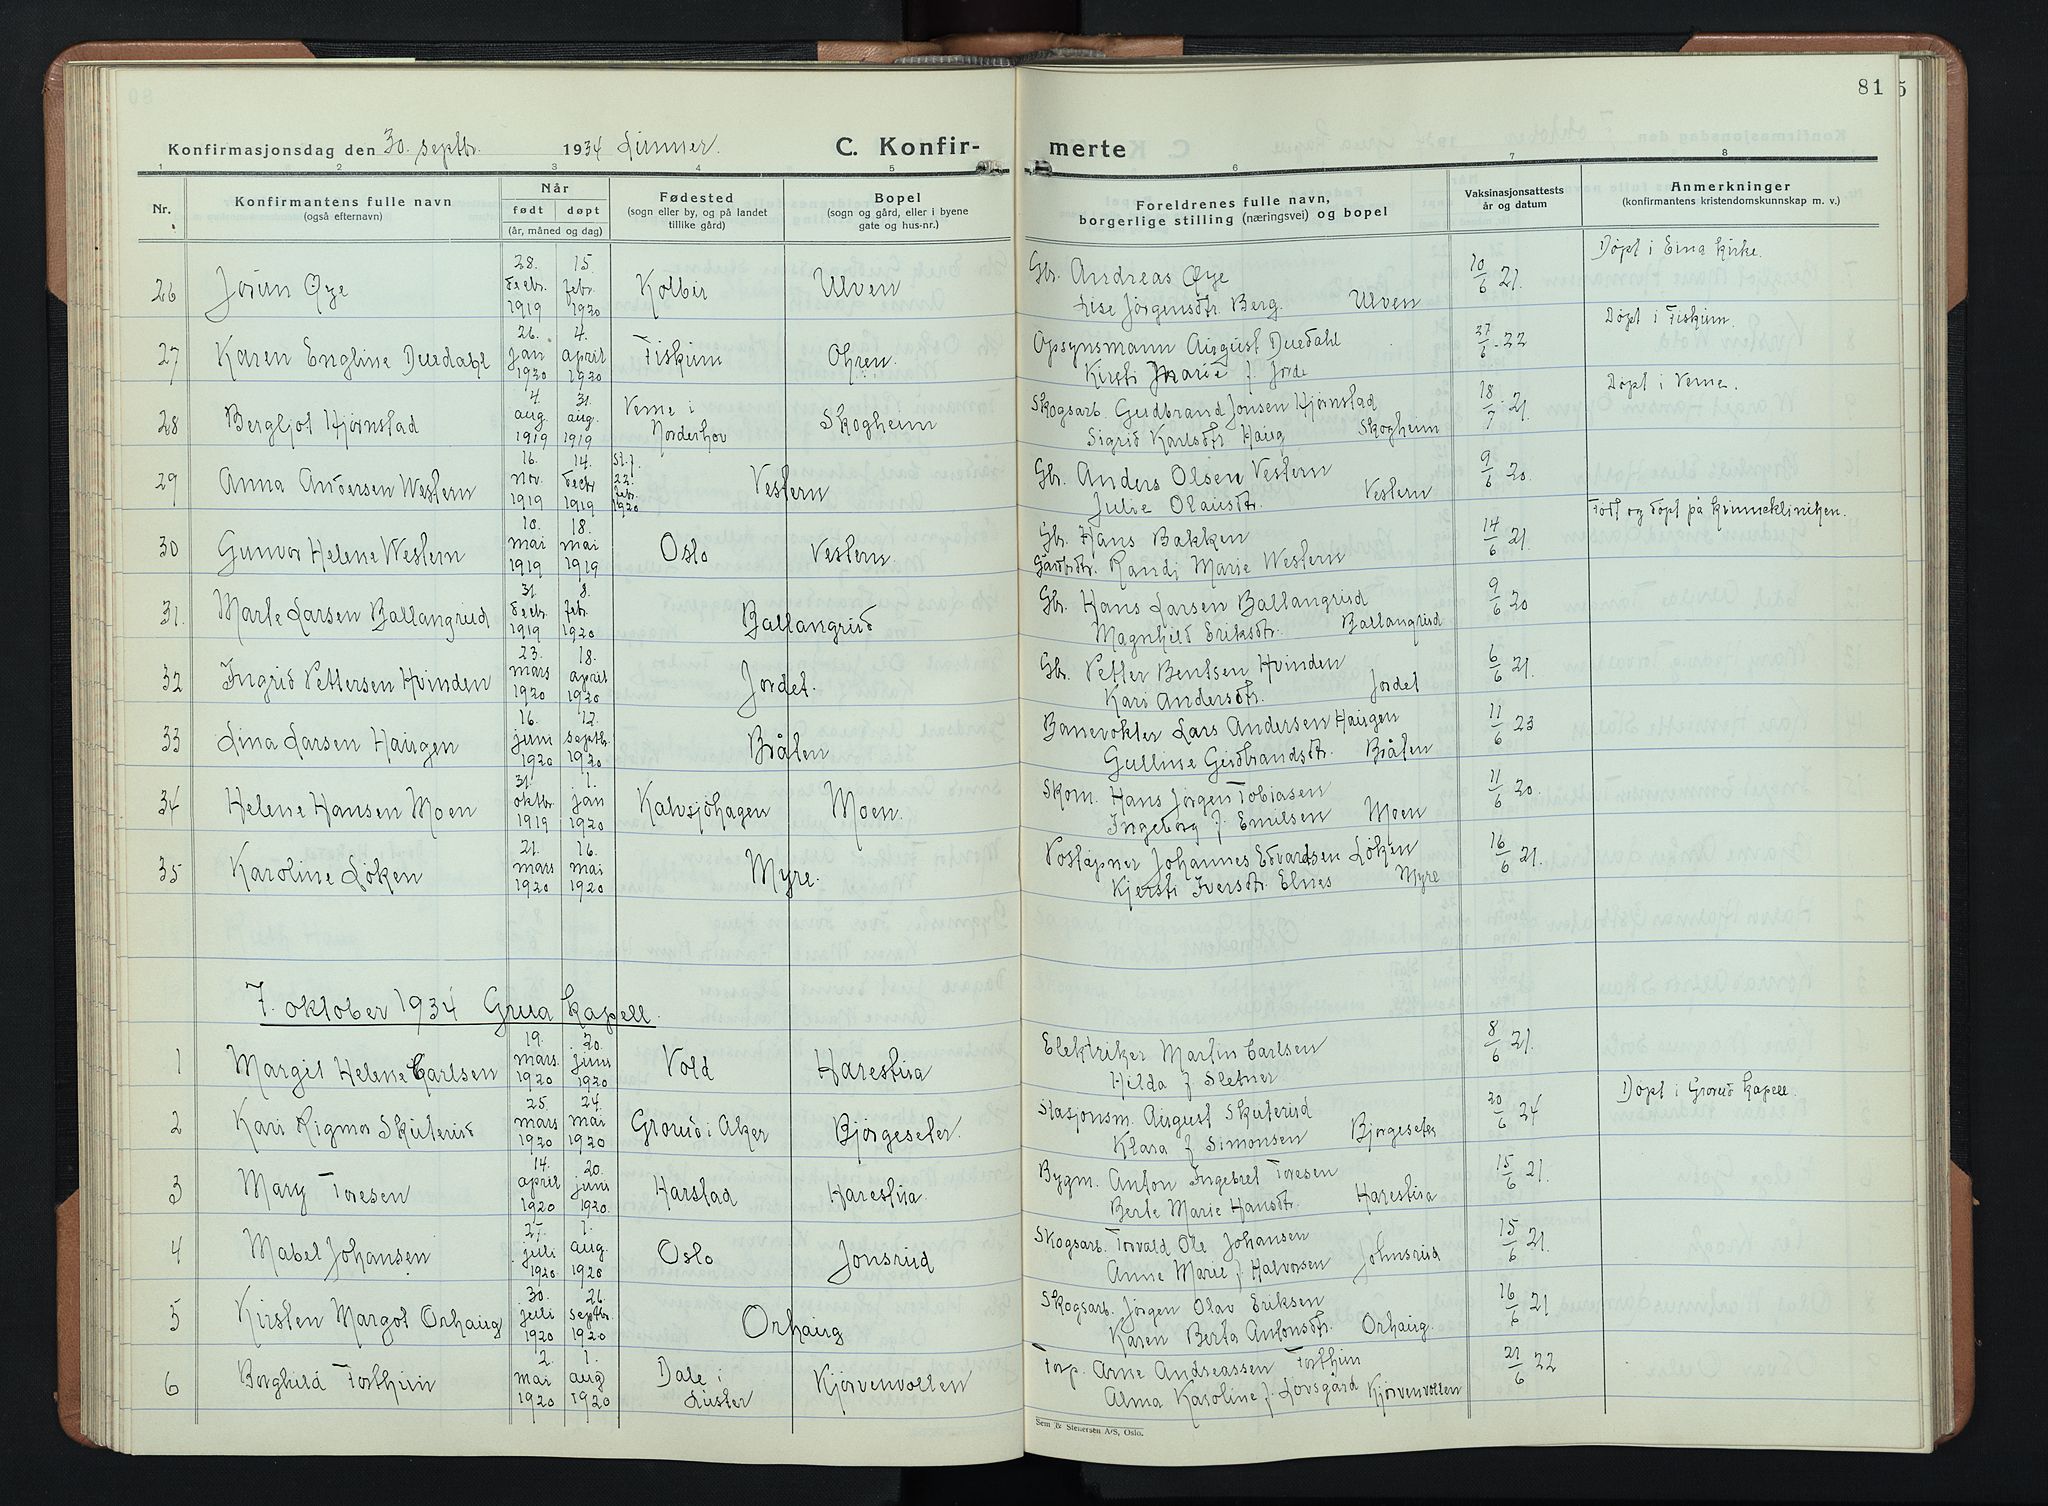 81
5
Konfirmasjonsdag den 30. septbr. 1934 Lunner.
C. Konfirmerte
1 2 3 4 5 6 7 8
Nr.
Konfirmantens fulle navn
(også efternavn)
Når
født døpt
(år, måned og dag)
Fødested
(sogn eller by, og på landet
tillike gård)
Bopel
(sogn og gård, eller i byene
gate og hus-nr.)
Foreldrenes fulle navn,
borgerlige stilling (næringsvei) og bopel
Vaksinasjonsattests
år og datum
Anmerkninger
(konfirmantens kristendomskunnskap m. v.)
26 Jorun Øye 28. decbr. 1919 15. febr. 1920 Kolbu Ulven Gbr. Andreas Øye 10/6 21. Døpt i Eina kirke.
Lise Jørgensdtr. Berg. Ulven
27 Karen Engline Duedahl 26. jan 1920 4. april 1920 Fiskum Ohren. Opsynsmann August Duedahl 27/6 22 Døpt i Fiskum.
Kirsti Marie f. Jorde
28 Bergljot Hjørnstad 4. aug. 1919 31. aug. 1919 Veme i Norderhov Skogheim Skogsarb. Gudbrand Jonsen Hjørnstad 18/7 21. Døpt i Veme.
Sigrid Karlsdtr. Haug Skogheim
29 Anna Andersen Western 16. nov. 1919 14. decbr 1919 St. f. 22. febr. 1920 Vestern Gbr. Anders Olsen Vestern 9/6 20.
Julie Olausdtr. Vestern
30 Gunvor Helene Western 10. mai 1919 18. mai 1919 Oslo Vestern. Gbr. Hans Bakken 14/6 21. Født og døpt på kvinneklinikken.
Gårdbdtr. Randi Marie Western
31. Marte Larsen Ballangrud 31. decbr. 1919 8. febr. 1920 Ballangrud Gbr. Hans Larsen Ballangrud 9/6 20
Magnhild Eriksdtr. Ballangrud
32 Ingrid Pettersen Hvinden 23. mars 1920 18. april 1920 Jordet. Gbr. Petter Bentsen Hvinden 6/6 21.
Kari Andersdtr. Jordet
33 Lina Larsen Haugen 16. juni 1920 12. septbr. 1920 Bråten Banevokter Lars Andersen Haugen 11/6 23
Gulline Gudbrandsdtr. Bråten
34 Helene Hansen Moen 31. oktbr. 1919 1. jan 1920 Kalvsjøhagen Moen. Skom. Hans Jørgen Tobiasen 11/6 20.
Ingeborg f. Emilsen Moen
35 Karoline Løken 21. mars 1920 16. mai 1920 Myre. Poståpner Johannes Edvardsen Løken 16/6 21.
Kjersti Iversdtr. Elnes Myre
7. oktober 1934 Grua kapell.
1 Margit Helene Carlsen 19. mars. 1920 20. juni 1920 Vold Harestua Elektriker Martin Carlsen 8/6 21.
Hilda f. Sletner
2 Kari Rigmor Skuterud 25. mars 1920 24. mai 1920 Grorud i Aker Bjørgeseter. Stasjonsm. August Skuterud 20/6 24 Døpt i Grorud kapell.
Klara f. Simonsen Bjørgeseter
3 Mary Toresen 14. april 1920 20. juni 1920. Harstad Harestua. Bygm. Anton Ingebret Toresen 15/6 21.
Berte Marie Hansdtr. Harestua
4 Mabel Johansen 27. juli 1920 1. aug 1920 Oslo Jonsrud Skogsarb. Torvald Ole Johansen 15/6 21.
Anne Marie f. Halvorsen Johnsrud
5 Kirsten Margot Orhaug 30. juli 1920 26. septbr. 1920 Orhaug Skogsarb. Jørgen Olav Eriksen 16/6 21
Karen Berta Antonsdtr. Orhaug.
6 Borghild Torthun 2. mai 1920 1. aug 1920 Dale i Luster Kjørvenvollen Torp. Arne Andreassen Torthun 21/6 22
Alma Karoline f. Lovsgård Kjørvenvollen
Sem & Stenersen A/S, Oslo.